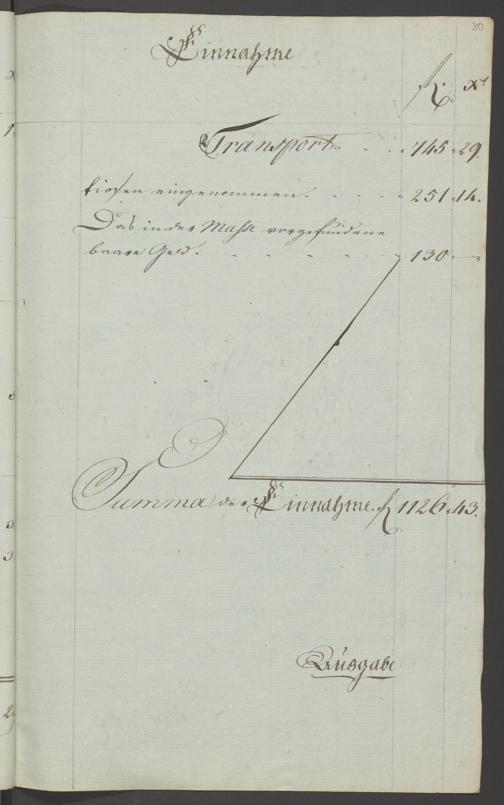 30
Einnahme
f. xr
Transport. . . 745. 29.
tionen eingenommen. . . . . 251. 14.
Das in der Masse vorgefundene
baare Geld. . . . . . . 130. —
Summa der Einnahme. f. 1126. 43.
Ausgabe